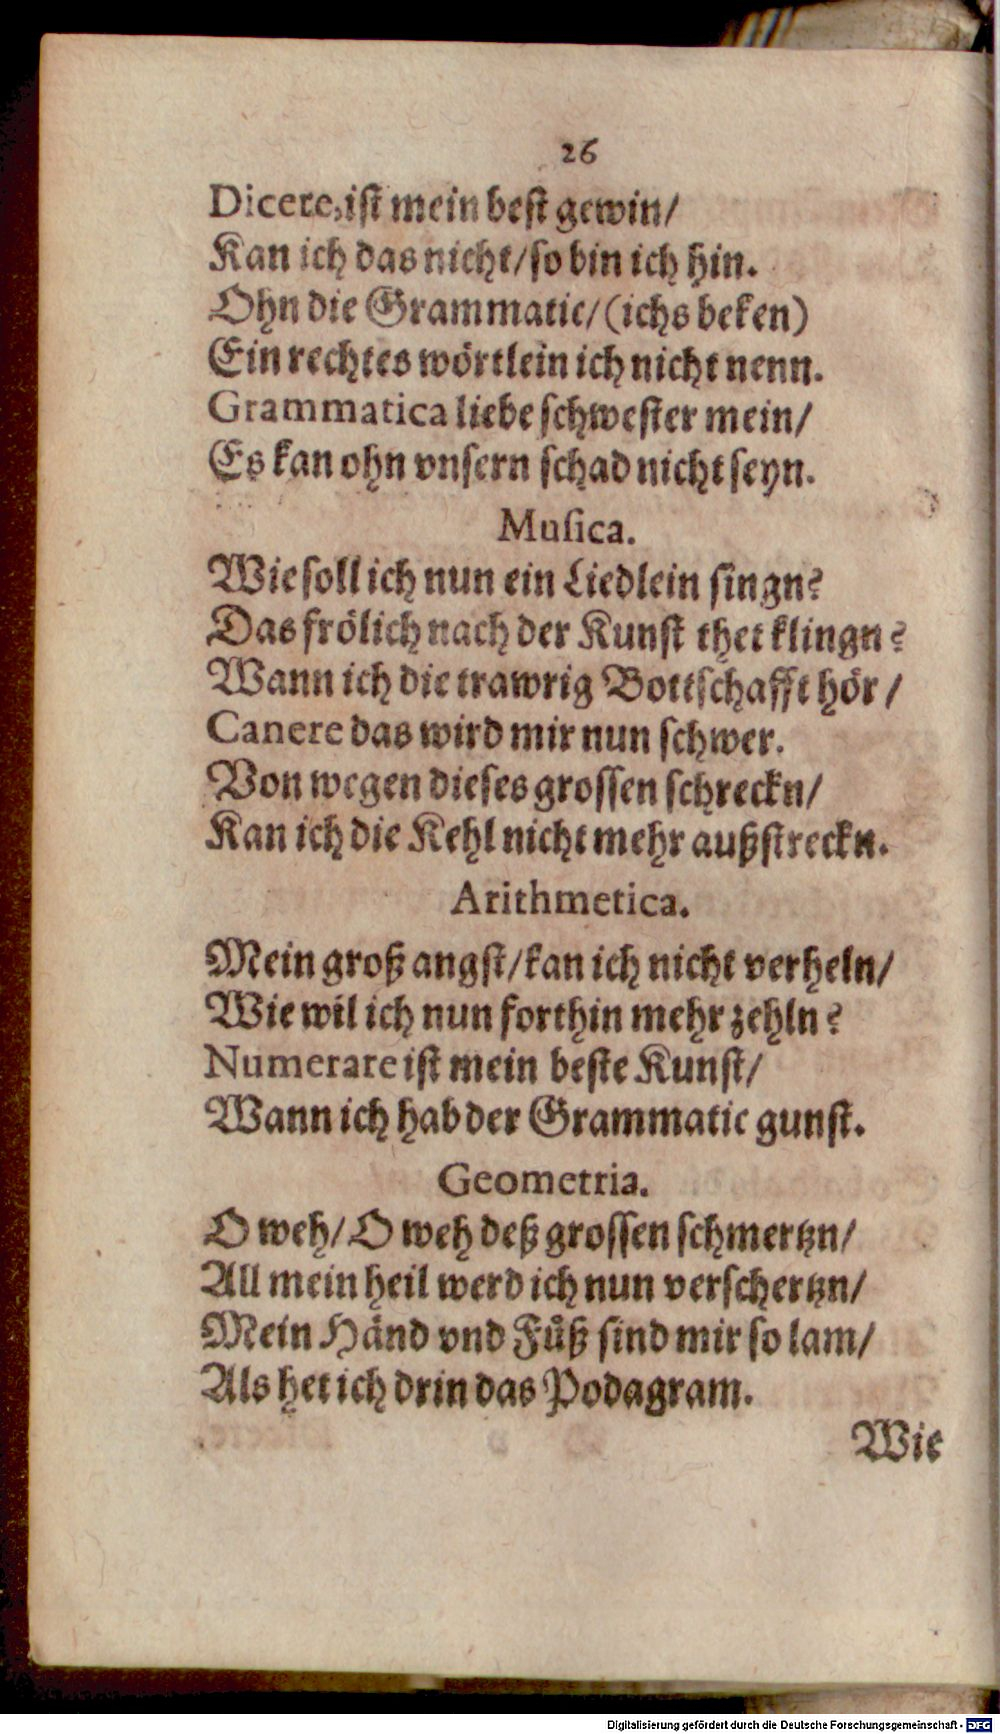 26
Dicere, ist mein best gewin/
Kan ich das nicht/ so bin ich hin.
Ohn die Grammatic/ (ichs beken)
Ein rechtes wörtlein ich nicht nenn.
Grammatica liebe schwester mein/
Es kan ohn vnsern schad nicht seyn.
Musica.
Wie soll ich nun ein Liedlein singn?
Das frölich nach der Kunst thet klingn?
Wann ich die trawrig Bottschafft hör/
Canere das wird mir nun schwer.
Von wegen dieses grossen schreckn/
Kan ich die Kehl nicht mehr außstreckn.
Arithmetica.
Mein groß angst/ kan ich nicht verheln/
Wie wil ich nun forthin mehr zehln?
Numerare ist mein beste Kunst/
Wann ich hab der Grammatic gunst.
Geometria.
O weh/ O weh deß grossen schmertzn/
All mein heil werd ich nun verschertzn/
Mein Händ vnd Füß sind mir so lam/
Als het ich drin das Podagram.
Wie
Digitalisierung gefördert durch die Deutsche Forschungsgemeinschaft - DFG